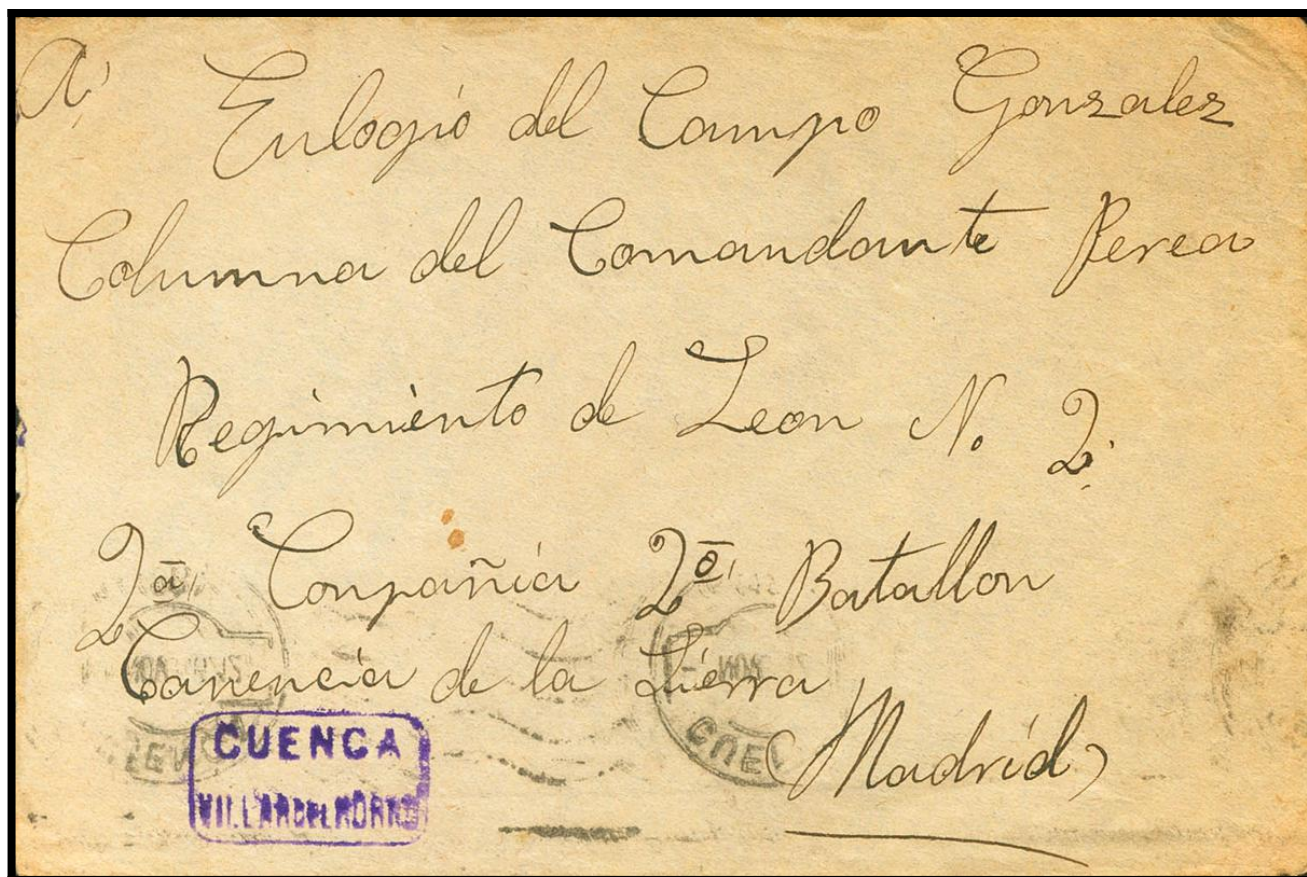 A,
Eulogio del Campo Gonzalez
Columna del Comandante Perea
Regimiento de Leon N. 2.
2ª, Conpañia 2º, Batallon
Canencia de la Sierra
(Madrid)
CUENCA
VILLAR DEL HORNO